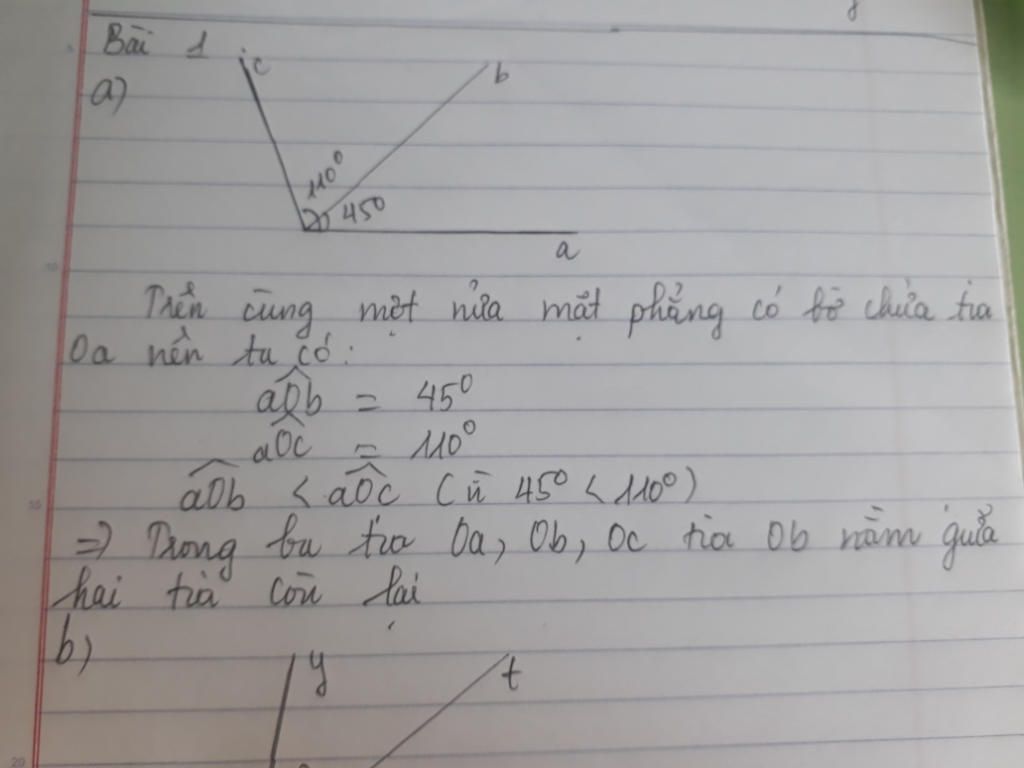 Bài 1
a)
c
b
110⁰
45⁰
a
Trên cùng một nửa mặt phẳng có bờ chứa tia
Oa nên ta có:
aOb = 45⁰
aOc = 110⁰
aOb < aOc (vì 45⁰ < 110⁰)
=> Trong ba tia Oa, Ob, Oc tia Ob nằm giữa
hai tia còn lại
b)
y
t